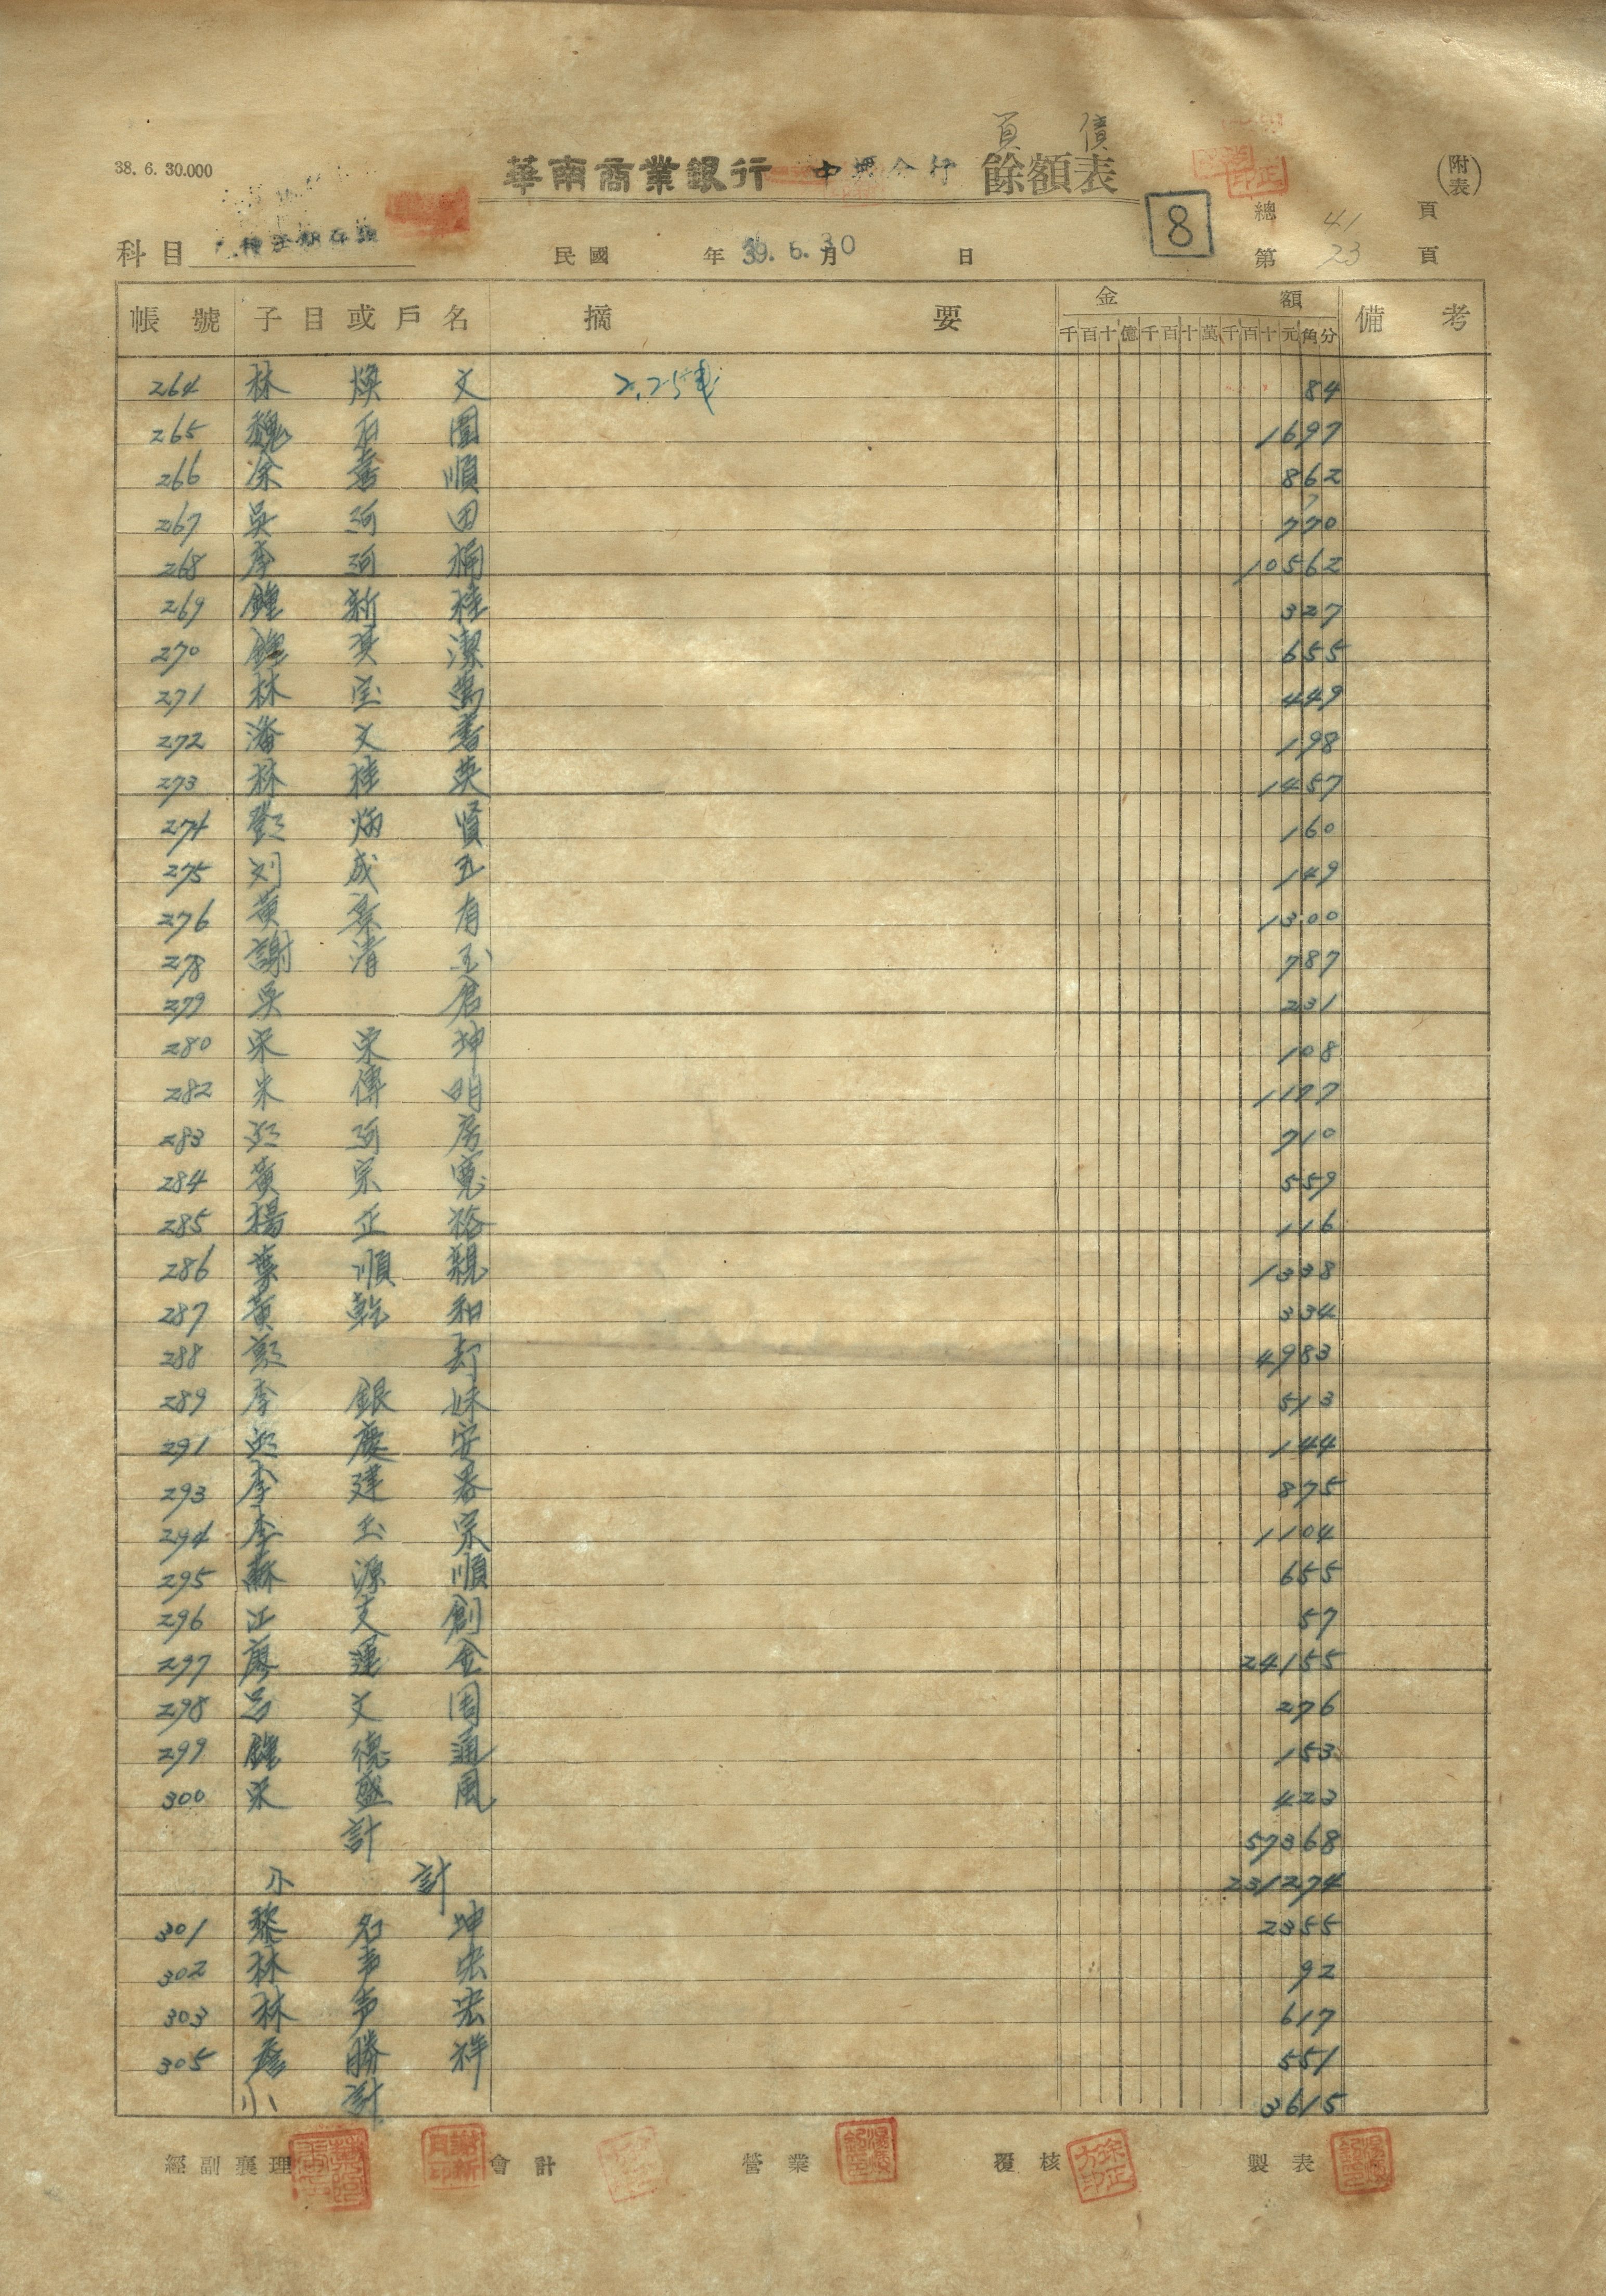 負債
38. 6. 30.000 華南商業銀行 中壢分行 餘額表 (附表)
8
總 41 頁
科目 民國 年 39. 6. 30 月 日 第 23 頁
帳號 子目或戶名 摘要 金額 備考
千百十億千百十萬千百十元角分
264 林煥文 2.25 84
265 魏石團 1697
266 余喜順 862
267 吳阿田 770
268 李阿桶 10562
269 鍾新桂 327
270 鍾 潔 655
271 林宝 449
272 潘文喜 198
273 林桂英 1457
274 鄧炳賢 160
275 刘成五 149
276 黃 有 1300
278 謝清玉 787
279 吳 231
280 宋榮坤 108
282 朱傳明 1177
283 彭阿房 710
284 黃宗寬 559
285 楊正裕 116
286 葉順親 1338
287 黃乾和 334
288 4983
289 李銀妹 513
291 慶安 144
293 李建 875
294 李玉宗 1104
295 蘇源順 655
296 江支創 57
297 廖運金 24155
298 呂文周 276
299 鍾德通 153
300 宋盛風 423
計 57368
小計 231274
301 黎名坤 2355
302 林 宏 92
303 林 宏 617
305 詹勝祥 551
小計 3615
經副襄理 會計 營業 覆核 製表